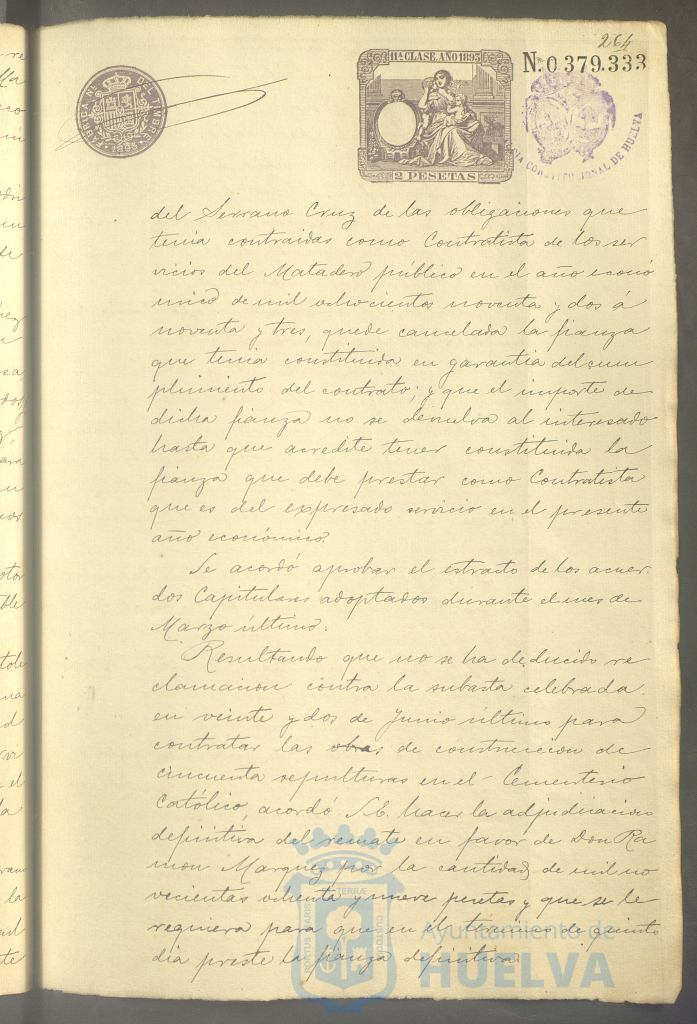 264
11ª CLASE. AÑO 1893
N. 0.379.333
FABRICA Nl. DEL TIMBRE
1893
2 PESETAS
CONSTITUCIONAL DE HUELVA
del Serrano Cruz de las obligaciones que
tenia contraidas como Contratista de los ser
vicios del Matadero público en el año econó
mico de mil ochocientos noventa y dos á
noventa y tres, quede cancelada la fianza
que tenia constituida en garantia del cum
plimiento del contrato; y que el importe de
dicha fianza no se devuelva al interesado
hasta que acredite tener constituida la
fianza que debe prestar como Contratista
que es del expresado servicio en el presente
año económico.
Se acordó aprobar el estracto de los acuer-
dos Capitulares adoptados durante el mes de
Marzo último.
Resultando que no se ha deducido re
clamacion contra la subasta celebrada
en veinte y dos de Junio último para
contratar las obras de construccion de
cincuenta sepulturas en el Cementerio
Católico, acordó S.E. hacer la adjudicacion
definitiva del remate en favor de Don Ra
mon Marquez por la cantidad de mil no
vecientas ochenta y nueve pesetas y que se le
requiera para que en el término de quinto
dia preste la fianza definitiva.
PORTUS MARIS ET TERRÆ CUSTODIA
Ayuntamiento de
HUELVA